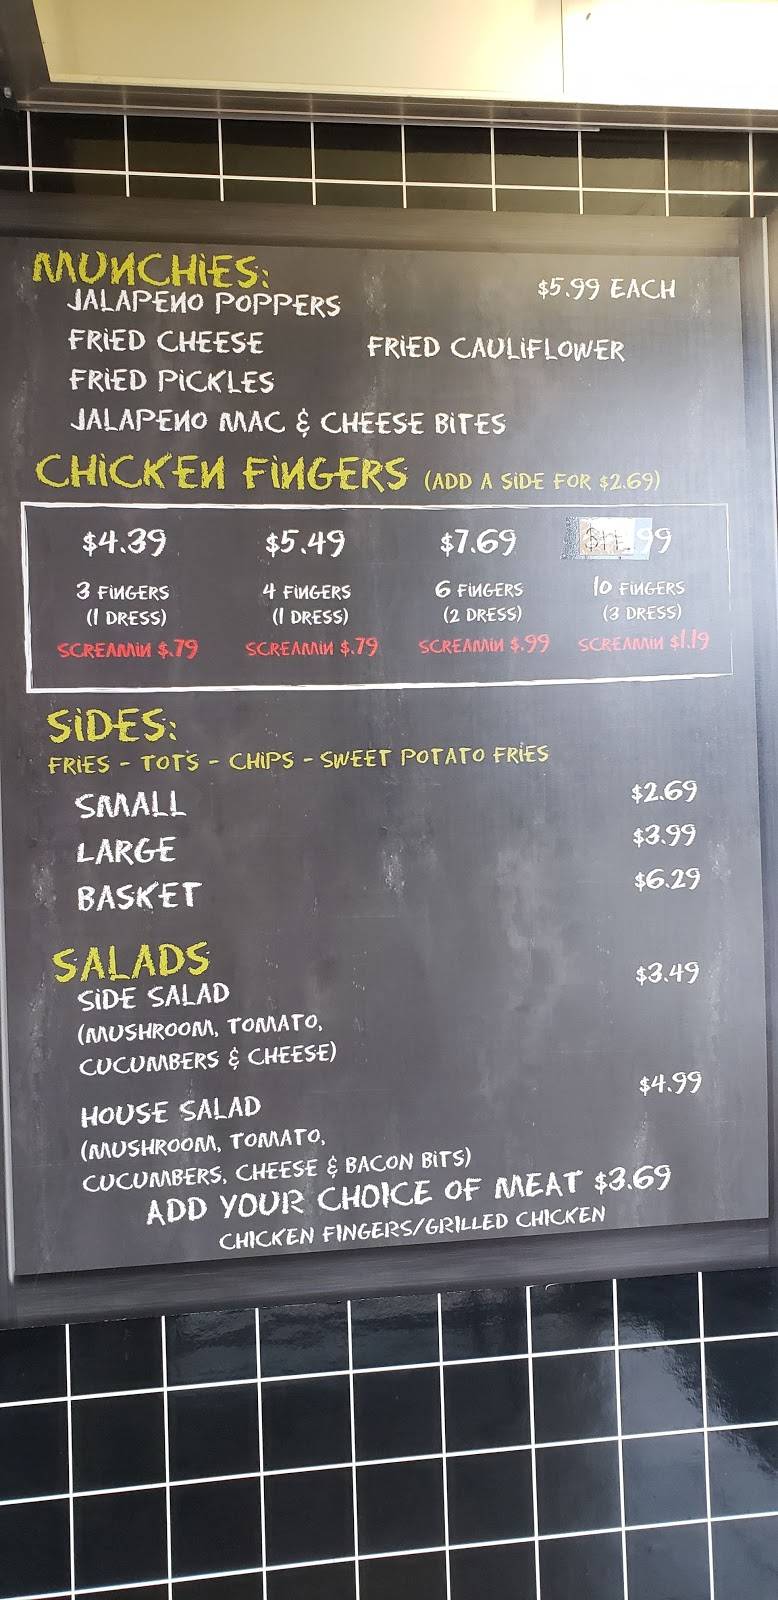 MUNCHIES:
JALAPENO POPPERS $5.99 EACH
FRIED CHEESE FRIED CAULIFLOWER
FRIED PICKLES
JALAPENO MAC & CHEESE BITES
CHICKEN FINGERS (ADD A SIDE FOR $2.69)
$4.39 $5.49 $7.69 99
3 FINGERS 4 FINGERS 6 FINGERS 10 FINGERS
(1 DRESS) (1 DRESS) (2 DRESS) (3 DRESS)
SCREAMIN $.79 SCREAMIN $.79 SCREAMIN $.99 SCREAMIN $1.19
SIDES:
FRIES - TOTS - CHIPS - SWEET POTATO FRIES
SMALL $2.69
LARGE $3.99
BASKET $6.29
SALADS
SIDE SALAD $3.49
(MUSHROOM, TOMATO,
CUCUMBERS & CHEESE)
HOUSE SALAD $4.99
(MUSHROOM, TOMATO,
CUCUMBERS, CHEESE & BACON BITS)
ADD YOUR CHOICE OF MEAT $3.69
CHICKEN FINGERS/GRILLED CHICKEN